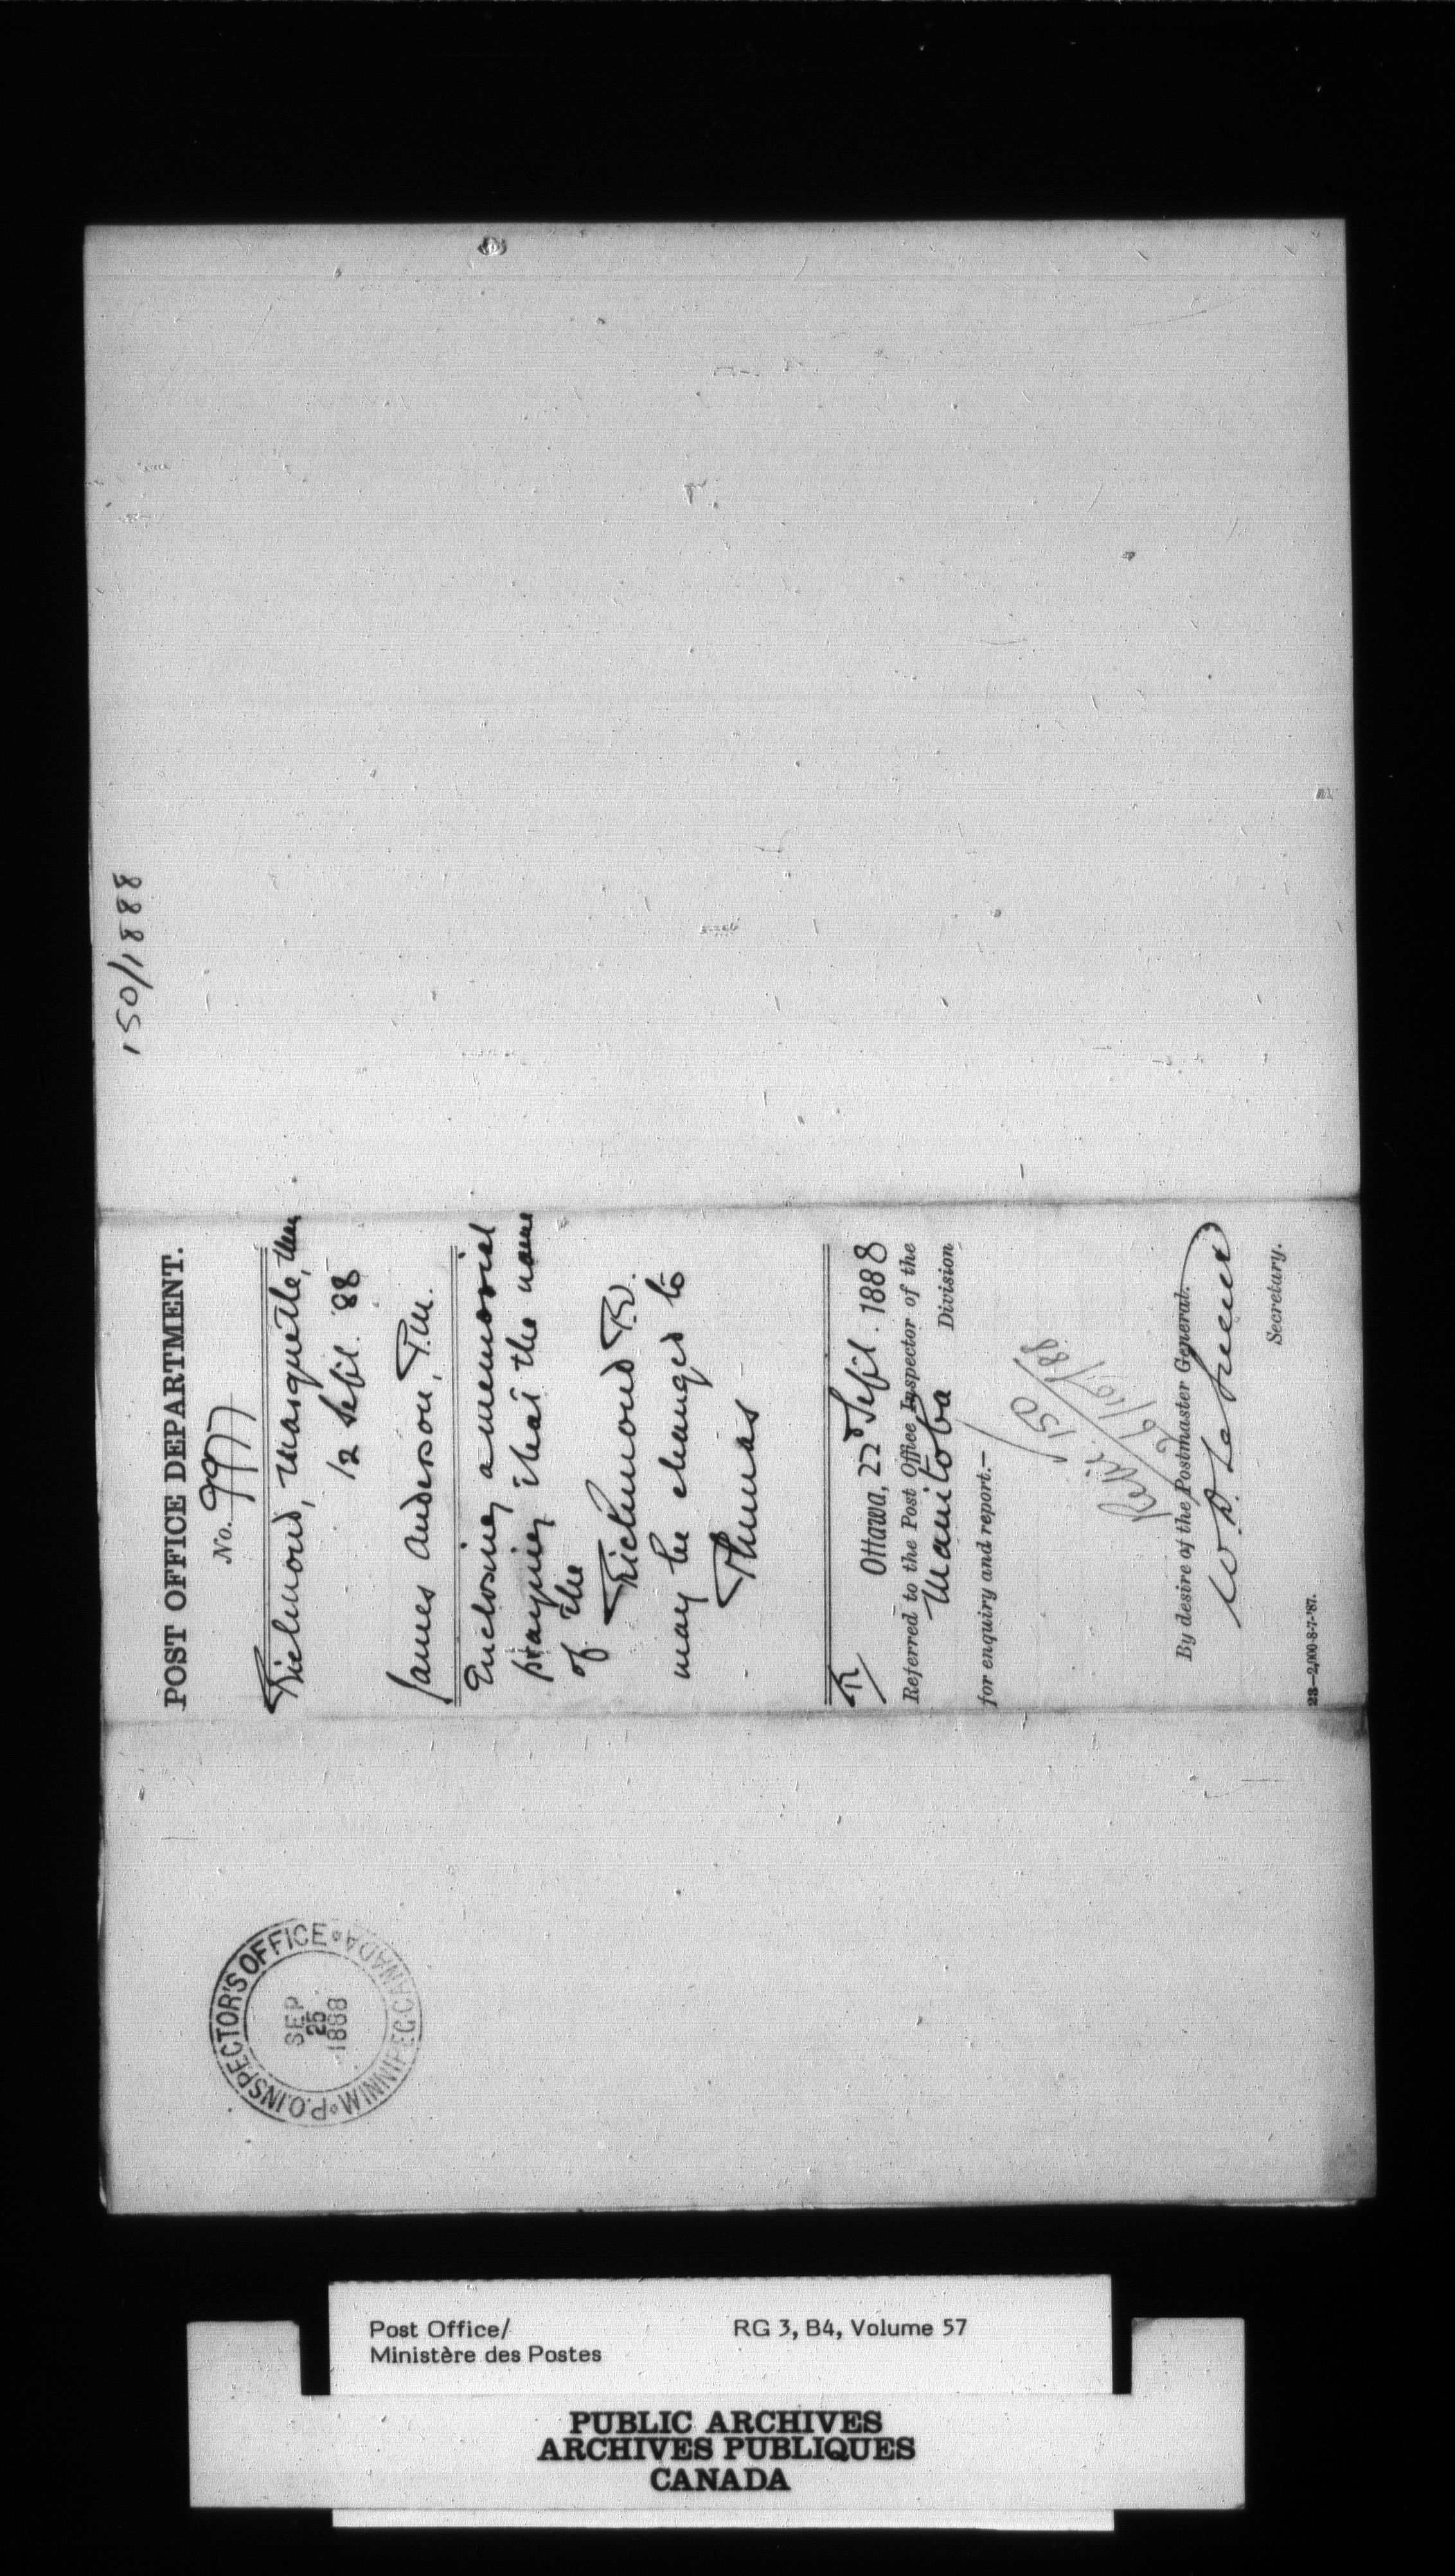 150/1888
POST OFFICE DEPARTMENT.
No. 997
Richmond, Marquette, Man
12 Sept. 88
James Anderson, P.M.
Enclosing a memorial
praying that the name
of the
Richmond P.O.
may be changed to
Thumas
R/
Ottawa, 22d Sept. 1888
Referred to the Post Office Inspector of the
Manitoba Division
for enquiry and report.—
150
26/10/88
By desire of the Postmaster General.
W. D. LeSueur
Secretary.
23—2,000-8-7-'87.
P.O. INSPECTOR'S OFFICE
SEP
25
1888
WINNIPEG·CANADA
Post Office/
Ministère des Postes
RG 3, B4, Volume 57
PUBLIC ARCHIVES
ARCHIVES PUBLIQUES
CANADA